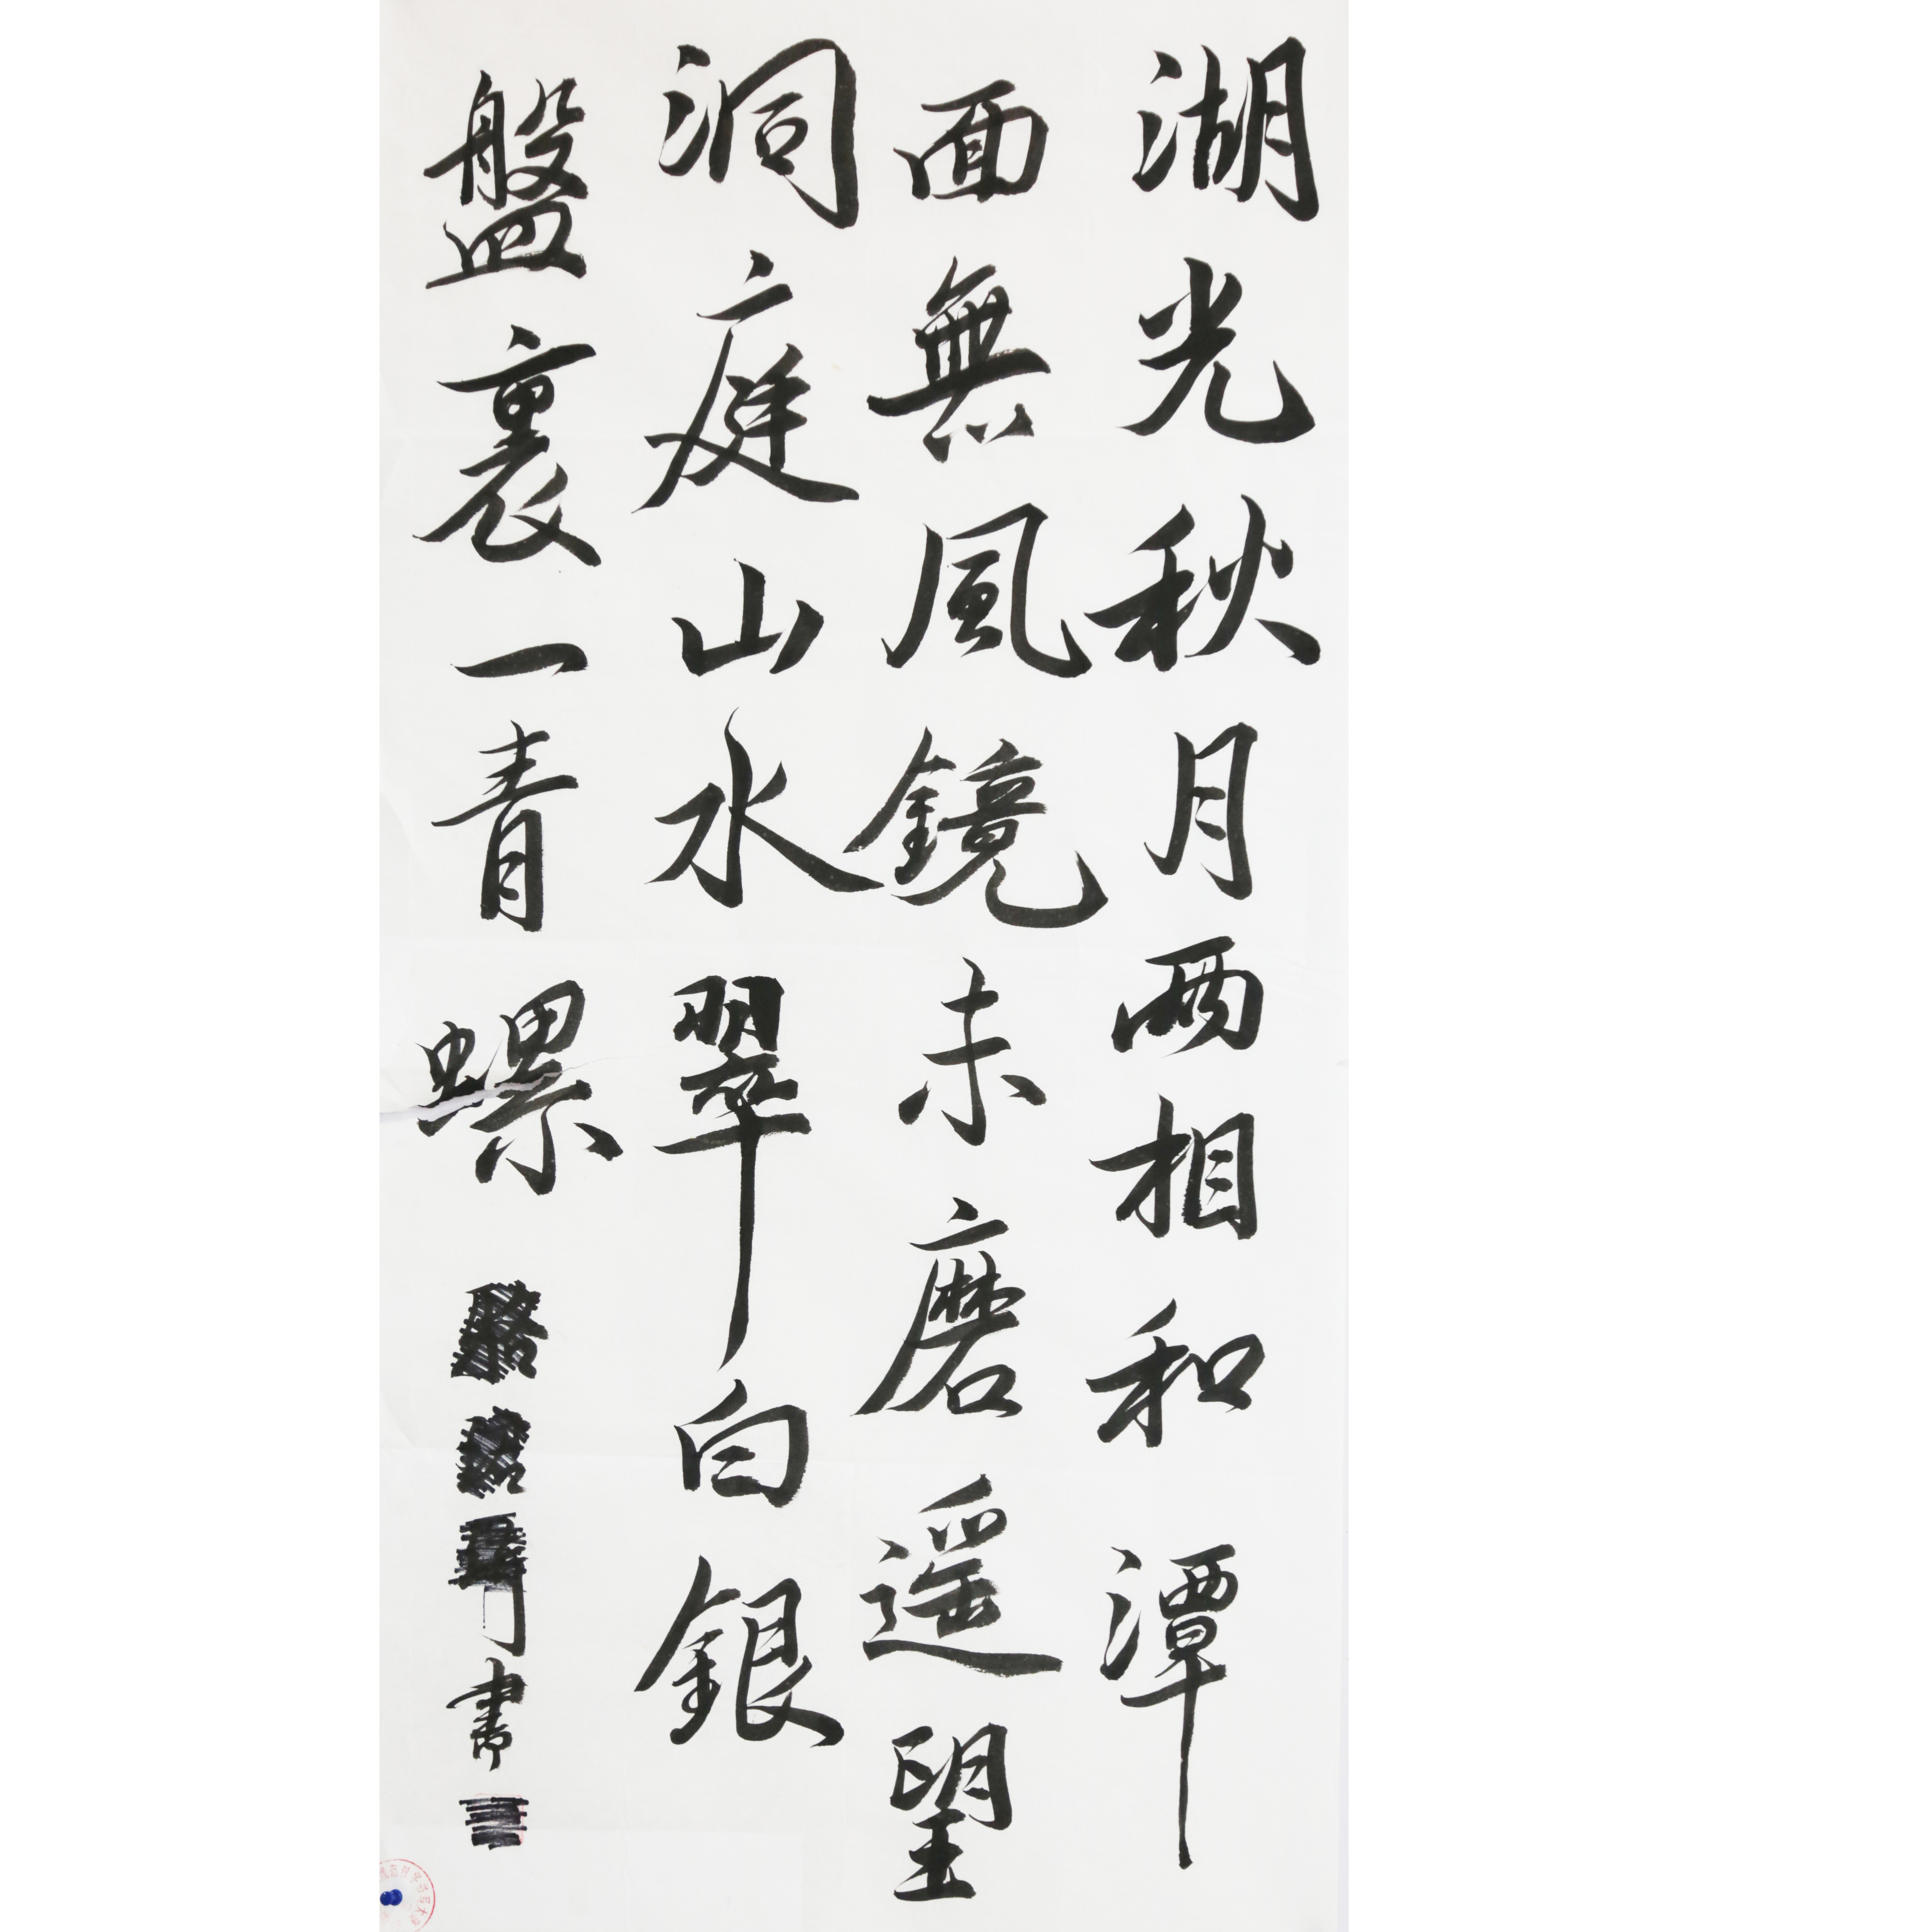 湖光秋月两相和潭
面無風鏡未磨遥望
洞庭山水翠白銀
盤裏一青螺
書